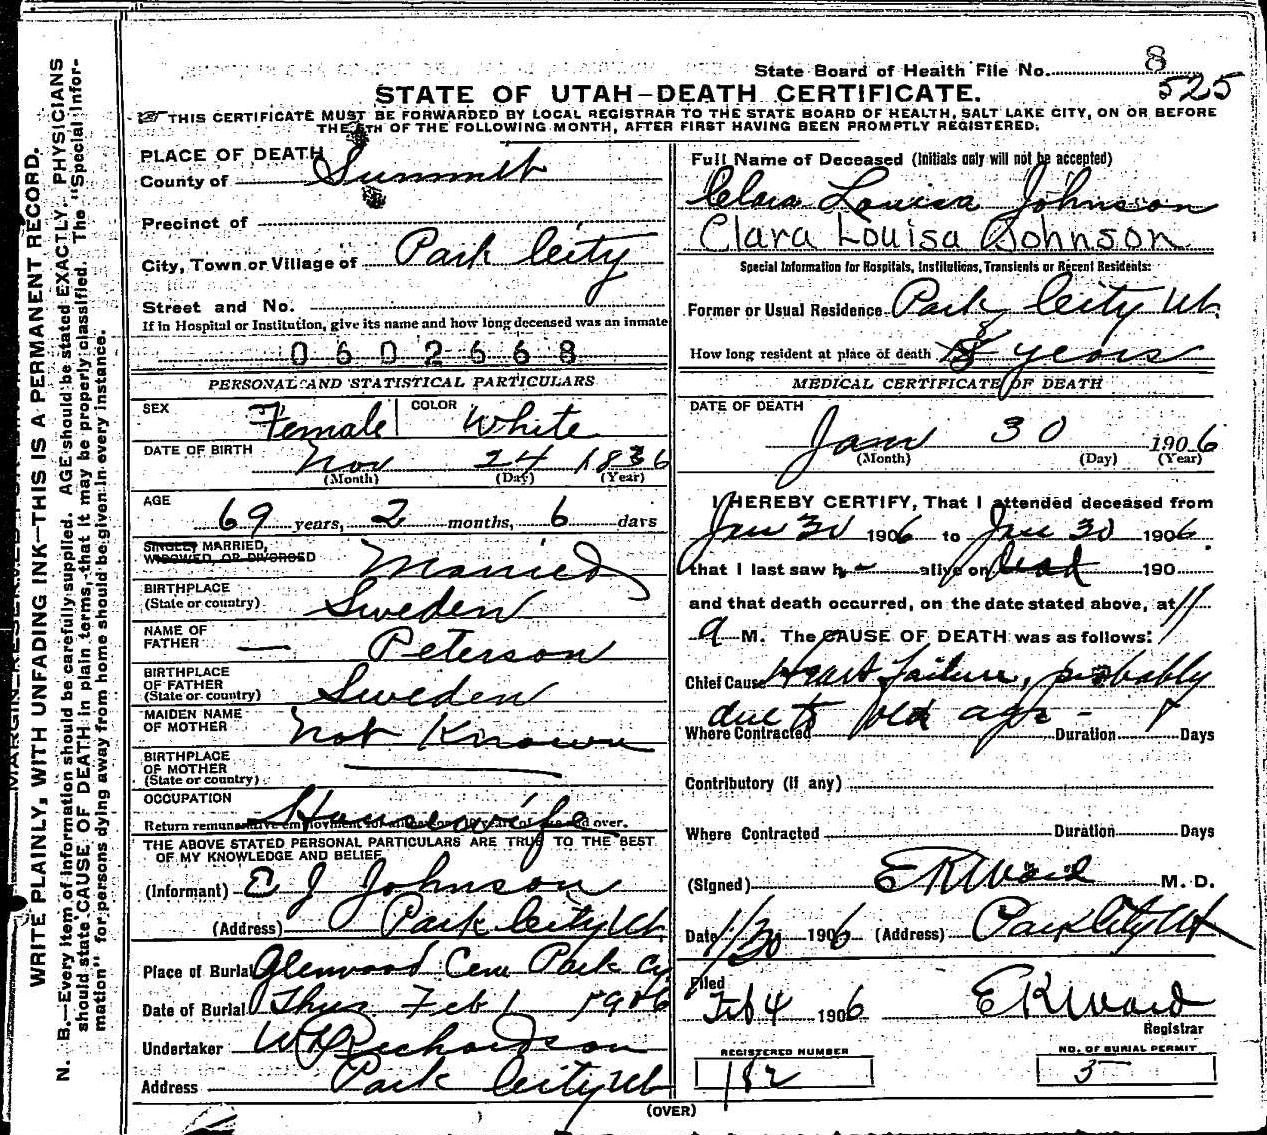 State Board of Health File No. 8
525
STATE OF UTAH—DEATH CERTIFICATE.
THIS CERTIFICATE MUST BE FORWARDED BY LOCAL REGISTRAR TO THE STATE BOARD OF HEALTH, SALT LAKE CITY, ON OR BEFORE
THE 5TH OF THE FOLLOWING MONTH, AFTER FIRST HAVING BEEN PROMPTLY REGISTERED.
PLACE OF DEATH
County of Summit
Precinct of
City, Town or Village of Park City
Street and No.
If in Hospital or Institution, give its name and how long deceased was an inmate
0602668
PERSONAL AND STATISTICAL PARTICULARS
SEX Female COLOR White
DATE OF BIRTH Nov 24 1836
(Month) (Day) (Year)
AGE 69 years, 2 months, 6 days
SINGLE, MARRIED,
WIDOWED, OR DIVORCED Married
BIRTHPLACE
(State or country) Sweden
NAME OF
FATHER — Peterson
BIRTHPLACE
OF FATHER
(State or country) Sweden
MAIDEN NAME
OF MOTHER Not Known
BIRTHPLACE
OF MOTHER
(State or country)
OCCUPATION Housewife
Return remunerative employment for over.
THE ABOVE STATED PERSONAL PARTICULARS ARE TRUE TO THE BEST
OF MY KNOWLEDGE AND BELIEF
(Informant) E J Johnson
(Address) Park City Ut
Place of Burial Glenwood Cem Park Cy
Date of Burial Thur Feb 1 1906
Undertaker W Richardson
Address Park City Ut
Full Name of Deceased (Initials only will not be accepted)
Clara Louisa Johnson
Clara Louisa Johnson
Special Information for Hospitals, Institutions, Transients or Recent Residents:
Former or Usual Residence Park City Ut.
How long resident at place of death 8 years
MEDICAL CERTIFICATE OF DEATH
DATE OF DEATH
Jan 30 1906
(Month) (Day) (Year)
I HEREBY CERTIFY, That I attended deceased from
Jan 30 1906 to Jan 30 1906.
that I last saw h— alive on dead 190
and that death occurred, on the date stated above, at 11
a M. The CAUSE OF DEATH was as follows:
Chief Cause Heart failure, probably
due to old age -
Where Contracted Duration Days
Contributory (if any)
Where Contracted Duration Days
(Signed) E R Ward M. D.
Date 1/30 1906 (Address) Park City Ut
Filed
Feb 4 1906 E R Ward
Registrar
REGISTERED NUMBER
182
NO. OF BURIAL PERMIT
5
(OVER)
WRITE PLAINLY, WITH UNFADING INK—THIS IS A PERMANENT RECORD.
N. B.—Every item of information should be carefully supplied. AGE should be stated EXACTLY. PHYSICIANS
should state CAUSE OF DEATH in plain terms, that it may be properly classified. The "Special Infor-
mation" for persons dying away from home should be given in every instance.